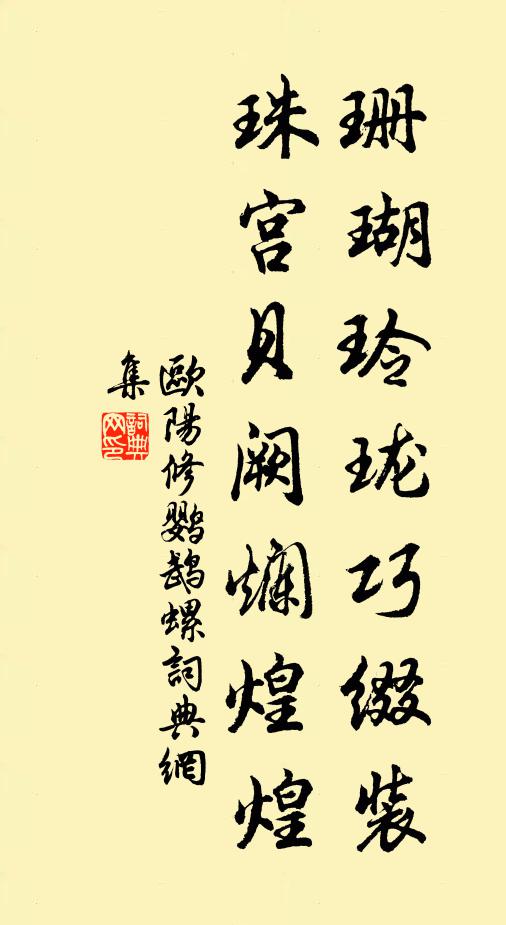 珊瑚玲珑巧缀装
珠宫贝阙烂煌煌
歐陽修鹦鹉螺詞典網
集
詞典网印